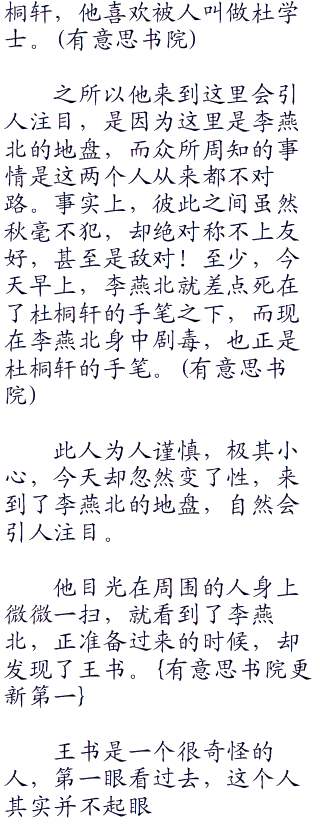 桐轩，他喜欢被人叫做杜学
士。(有意思书院)
之所以他来到这里会引
人注目，是因为这里是李燕
北的地盘，而众所周知的事
情是这两个人从来都不对
路。事实上，彼此之间虽然
秋毫不犯，却绝对称不上友
好，甚至是敌对！至少，今
天早上，李燕北就差点死在
了杜桐轩的手笔之下，而现
在李燕北身中剧毒，也正是
杜桐轩的手笔。(有意思书
院)
此人为人谨慎，极其小
心，今天却忽然变了性，来
到了李燕北的地盘，自然会
引人注目。
他目光在周围的人身上
微微一扫，就看到了李燕
北，正准备过来的时候，却
发现了王书。{有意思书院更
新第一}
王书是一个很奇怪的
人，第一眼看过去，这个人
其实并不起眼